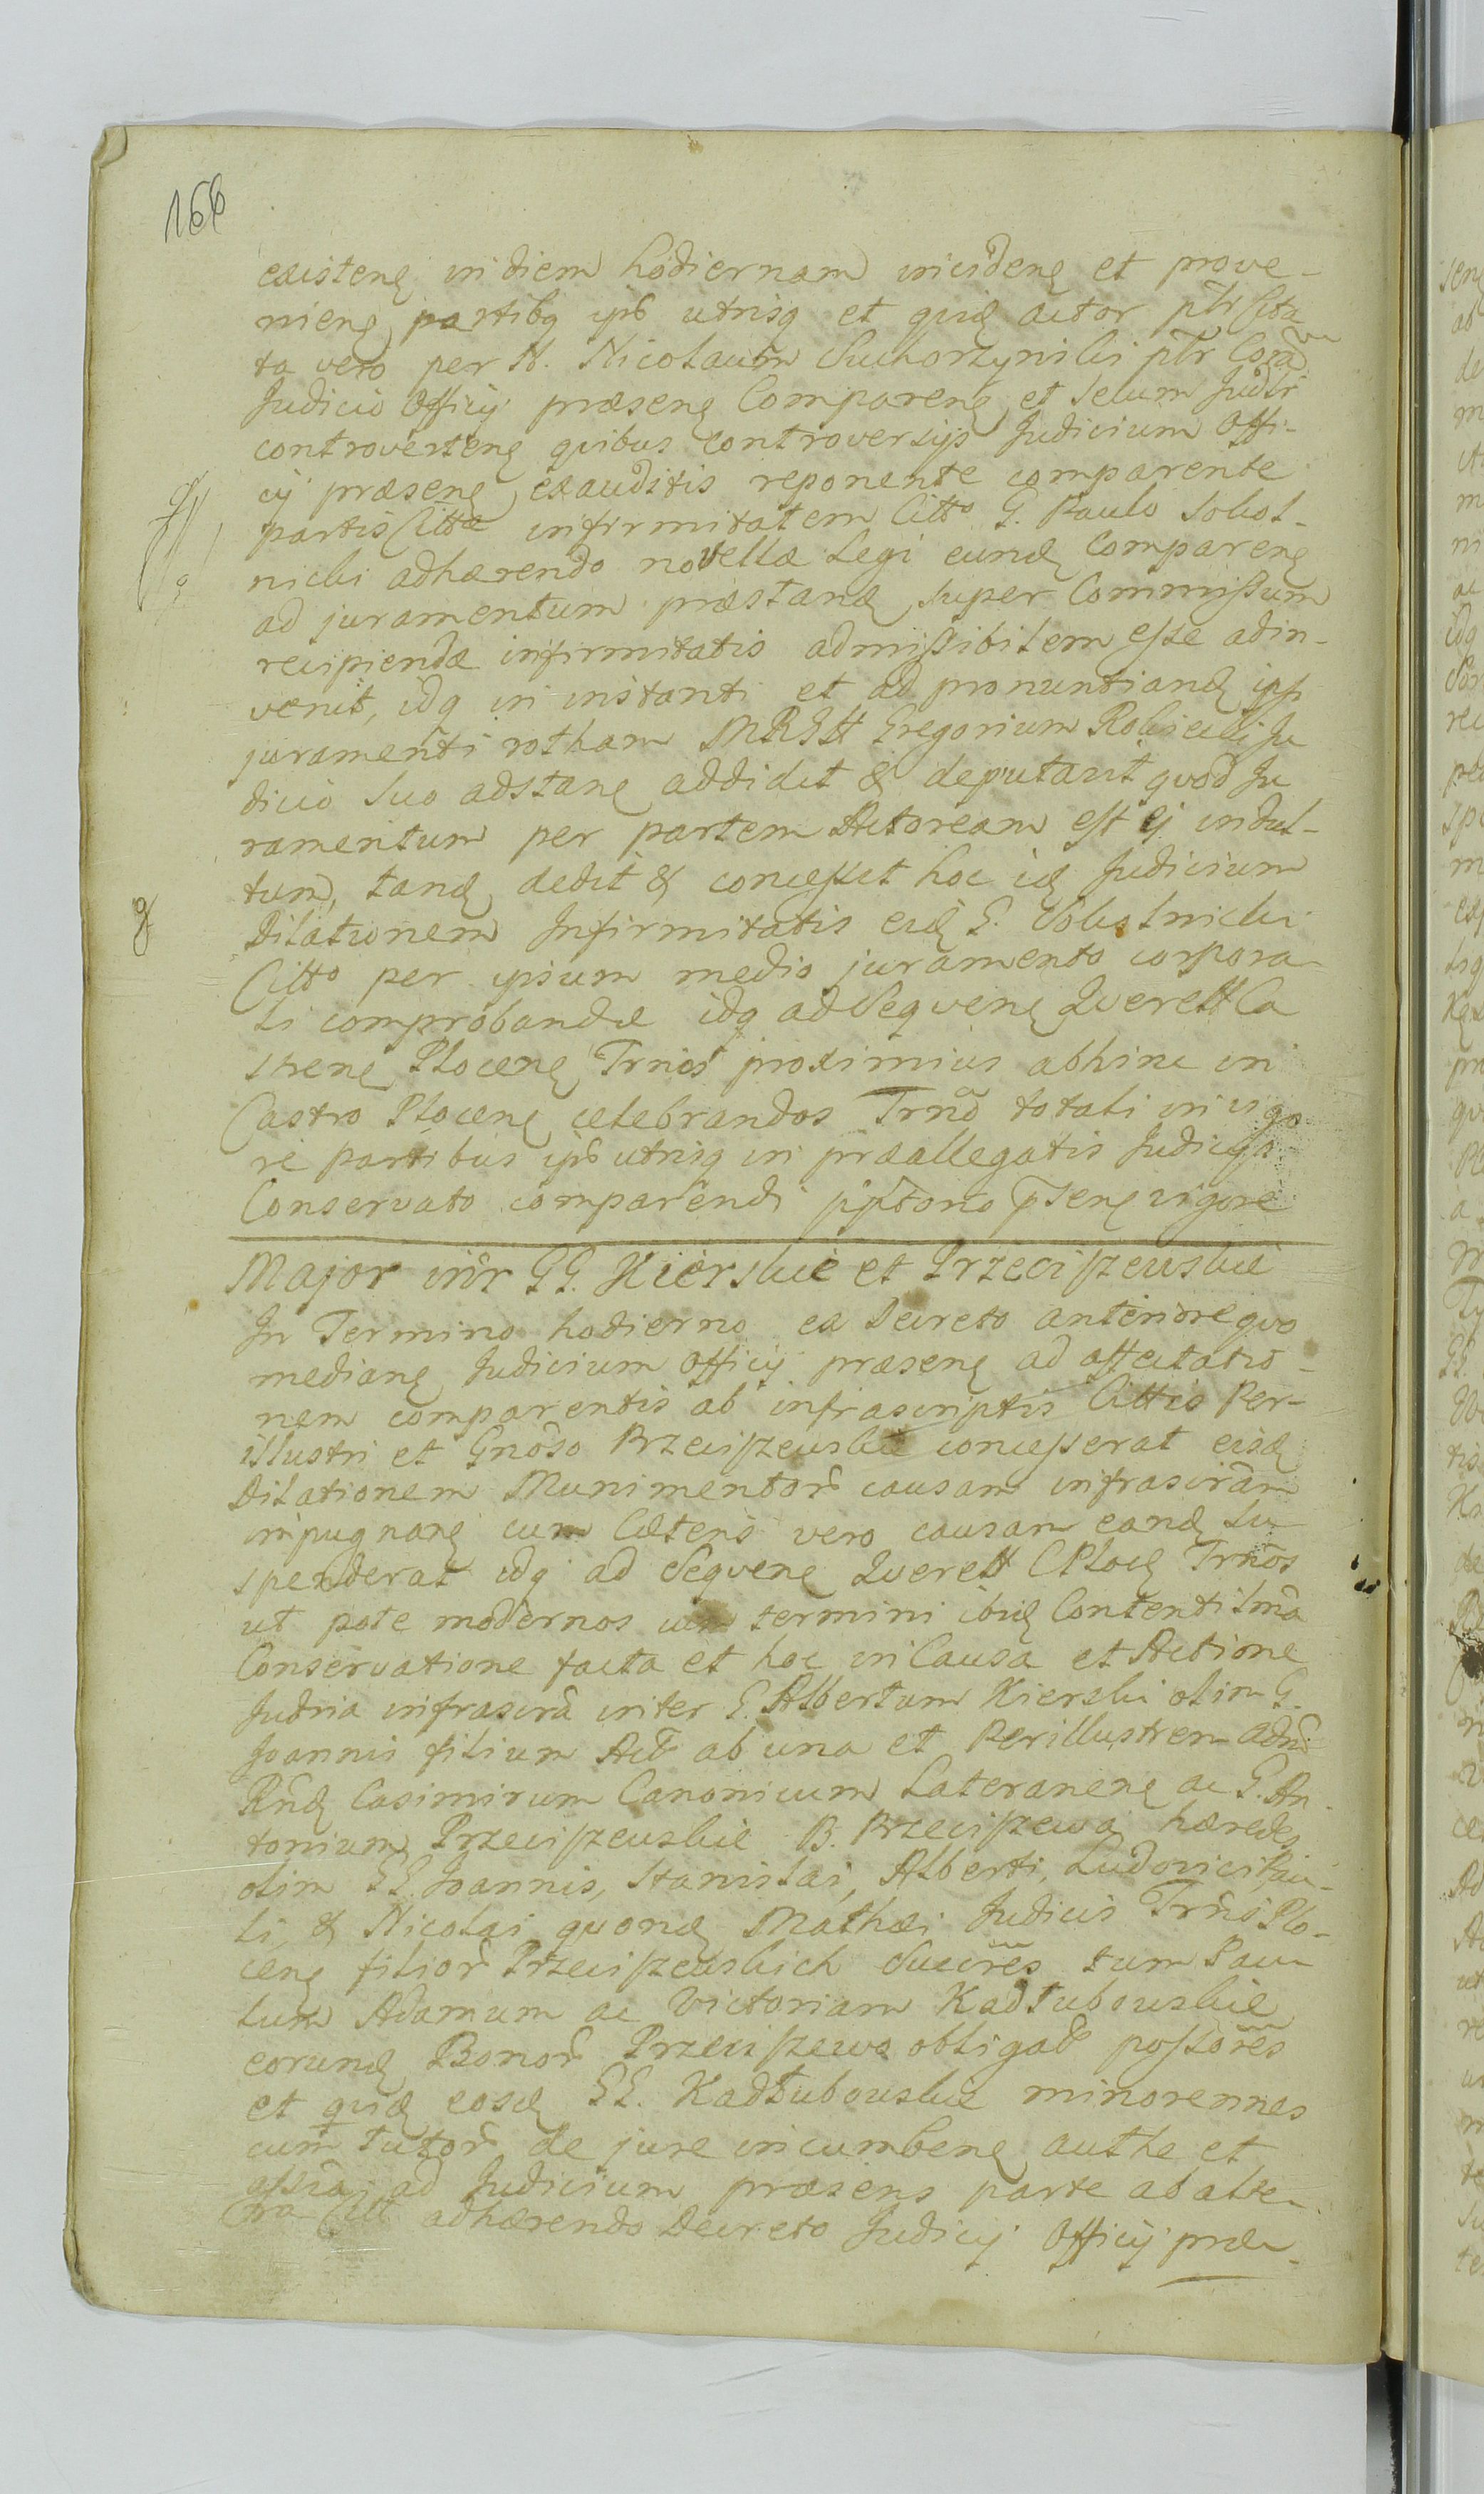 166
existenę in diem hodiernam incidenę et prove-
nienę partibq ipš utrisq et quię actor pltr Citta
ta vero per N. Nicolaum Suchorzynski pltr Coram
Judicio Officij præsenę Comparenę et secum Judlr
controvertenę quibus controversijs Judicium Offi-
cij præsenę exauditis reponente comparente
partis Cittæ infirmitatem Citto G. Paulo Sobol-
nicki adhærendo novellæ Legi eundę Comparenę
ad juramentum præstandę super Commissum
recipiendæ infirmitatis admissibilem esse adin-
venit, idq in instanti et ad pronuntiandę ipsi
juramenti rotham Gregorium Ju
dicio suo adstanę addidit & deputavit quod Ju
ramentum per partem Actoream est ej indul-
tum, tandę dedit & concessit hoc ię Judicium
Dilationem Infirmitatis eidę G. Sobolnicki
Citto per ipsum medio juramento corpora-
li comprobandæ idq ad Sequenę Querell Ca
strenę Plocenę Trnos proximius abhinc in
Castro Plocenę celebrandos Trno totali in vigo
re partibus ipš utrisq in præallegatis Judicijs
Conservato comparendi pptorio psenę vigore
Major intr GG. Kierskie et Przeciszewskie
In Termino hodierno ex Decreto anteriore quo
medianę Judicium Officij præsenę ad affectatio-
nem comparentis ab infrascriptis Cittis Per-
illustri et Gnoso Przeciszewskie concesserat eisdę
Dilationem Munimentor causam infrascram
impugnanę cum Cæteris vero causam eandę su-
spenderat idq ad Sequenę Querell CPlocę Trnos
ut pote modernos cum termini ibidę Contenti lma
Conservatione facta et hoc in Causa et Actione
Judria infrascra inter G. Albertum Kierski olim G.
Joannis filium Act ab una et Perillustrem Adm
Rndę Casimirum Canonicum Lateranenę ac G. An-
tonium Przeciszewskie B. Przeciszewa hæredes
olim GG. Joannis, Stanislai, Alberti, Ludovici, Pau-
li, & Nicolai quondę Mathæi Judicis Trris Plo-
cenę filior Przeciszewskich Succres tum Pau-
lum Adamum ac Victoriam Kadłubowskie
eorundę Bonor Przeciszewo obligat possores
et quidę eosdę GG. Kadłubowskie minorennes
cum Tutor de jure incumbenę authe et
assia ad Judicium præsens parte ab alte-
ra Citt adhærendo Decreto Judicij Officij præ-